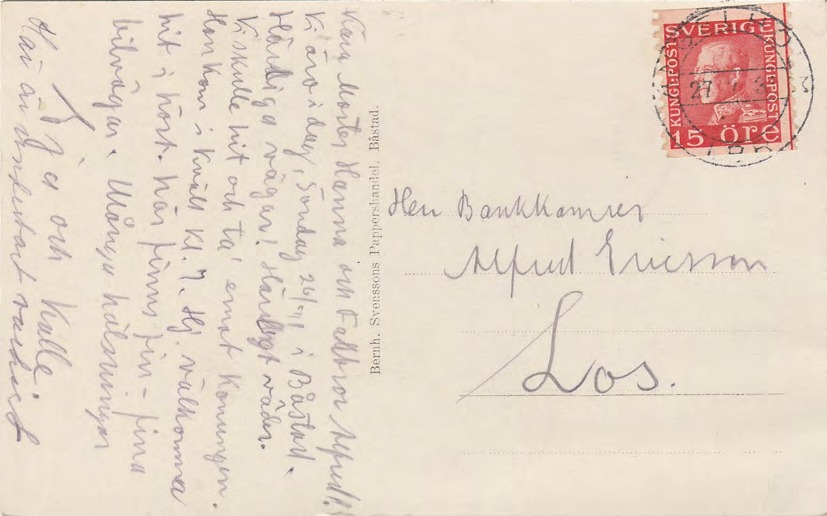 Kära Moster Hanna och Farbror Alfred!
Vi äro i dag, Söndag 26/7, i Båstad.
Härliga vägar! Härligt väder.
Vi skulle hit och ta' emot Konungen.
Han kom i kväll kl. 7. Hj. välkomna
hit i höst. Här finns fin-fina
bilvägar. Många hälsningar
Ja och Kalle
Här är
vackert
Bernh. Svenssons Pappershandel, Båstad.
Herr Bankkamrer
Alfred Ericsson
Los.
SVERIGE
KUNGL:POST
KUNGL:POST
15 ÖRE
27